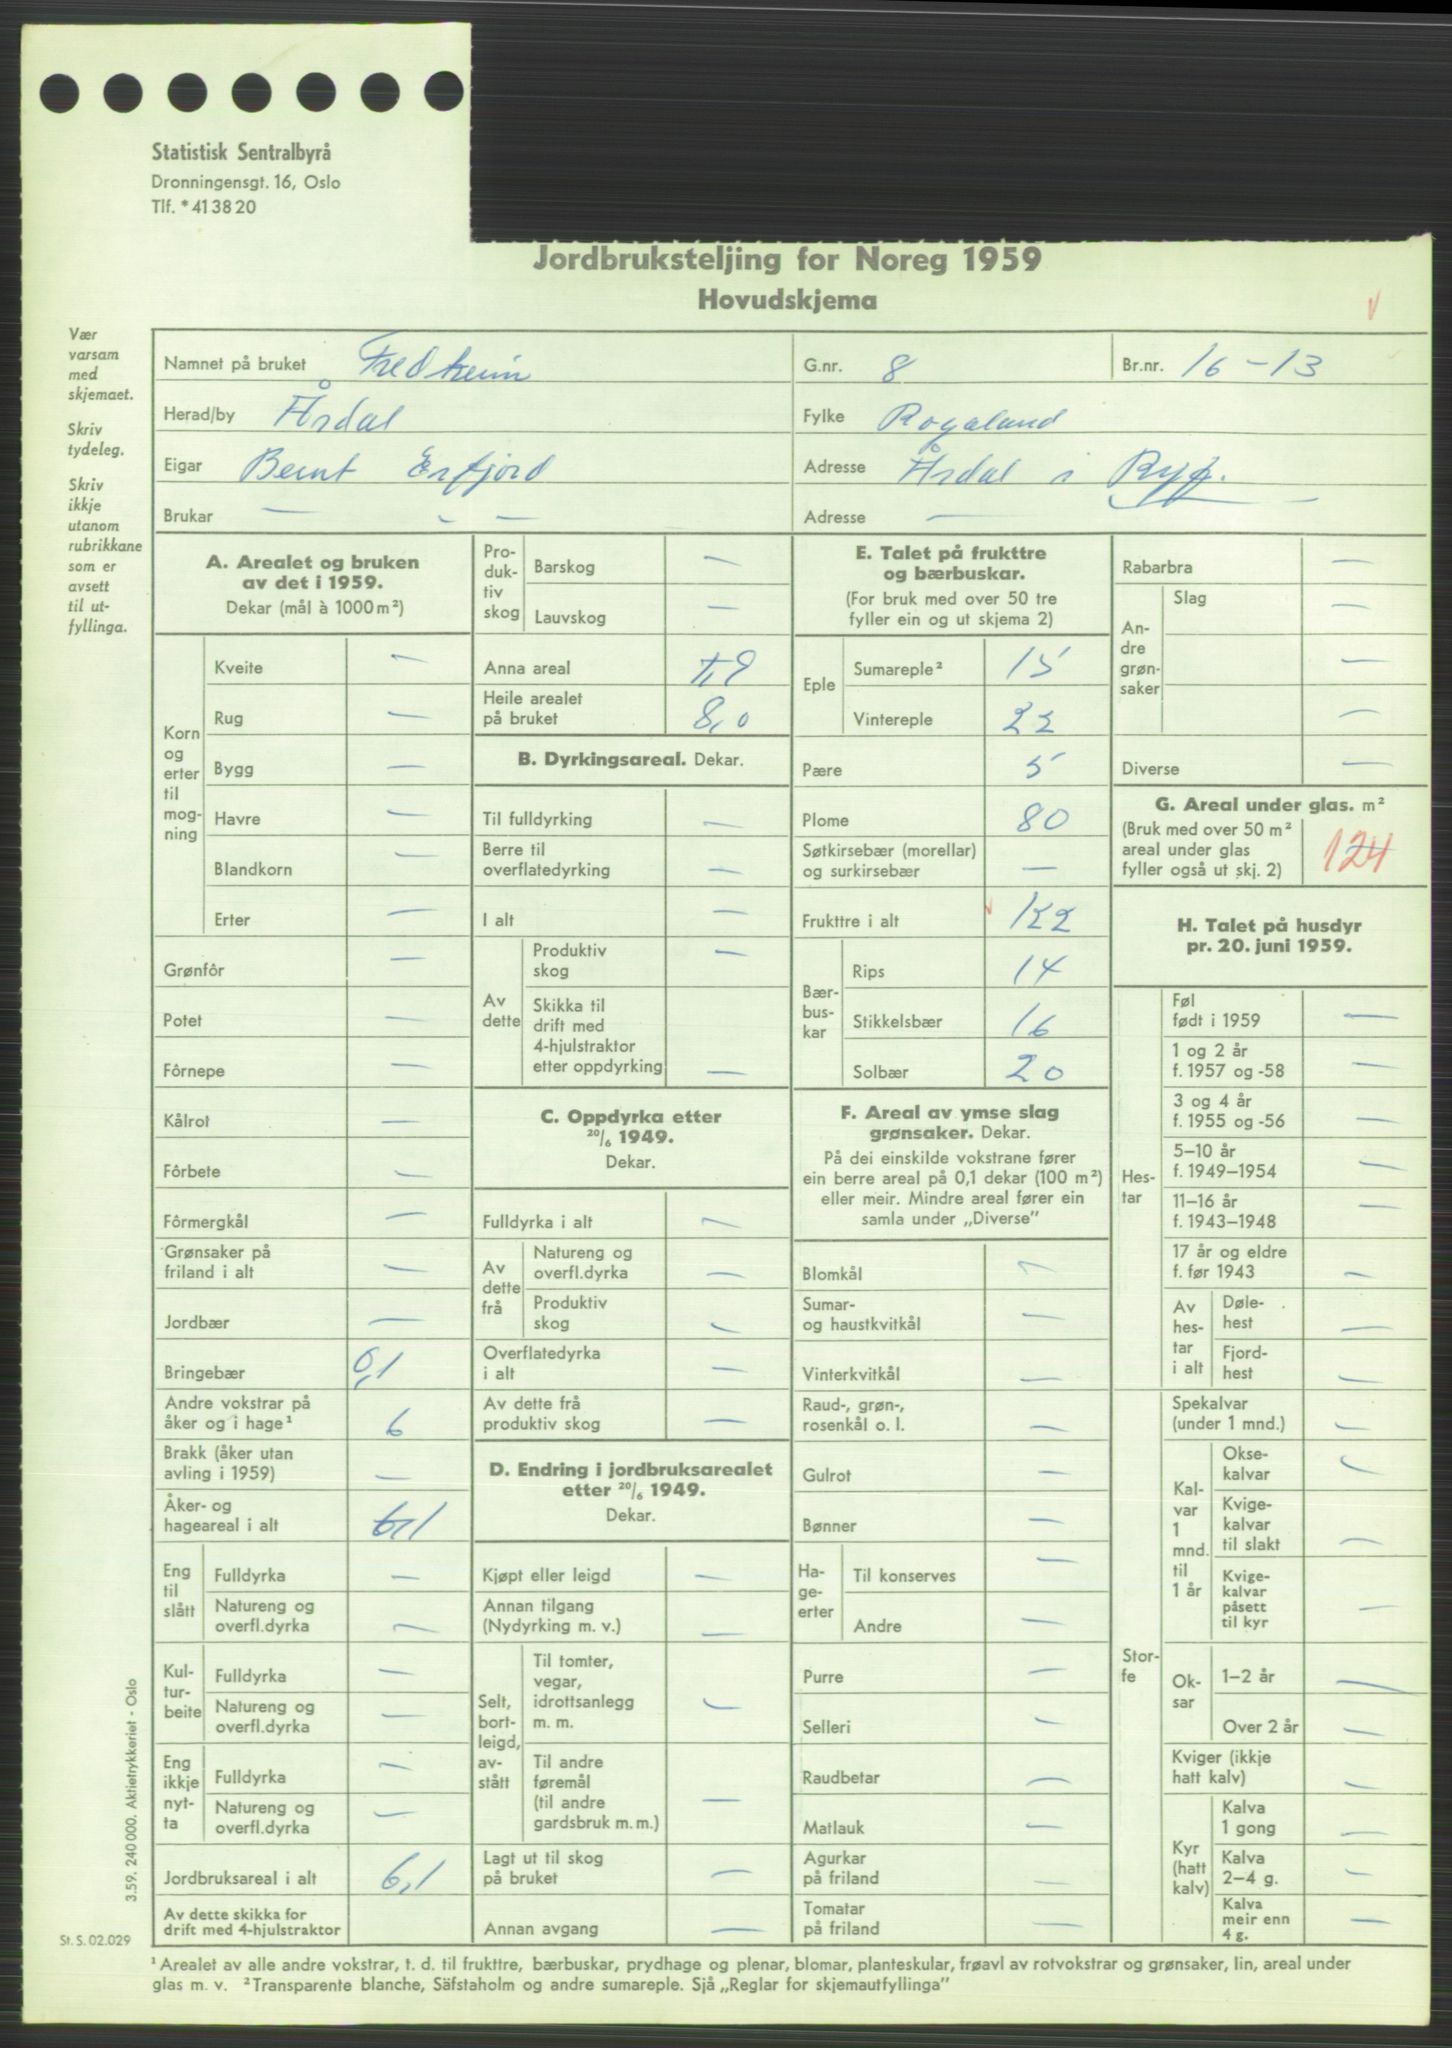 Statistisk Sentralbyrå
Dronningensgt. 16, Oslo
Tlf. * 41 38 20
Jordbruksteljing for Noreg 1959
Hovudskjema
Vær
varsam
med
skjemaet.
Skriv
tydeleg.
Skriv
ikkje
utanom
rubrikkane
som er
avsett
til ut-
fyllinga.
Namnet på bruket Fredheim G.nr. 8 Br.nr. 16 – 13
Herad/by Årdal Fylke Rogaland
Eigar Bernt Erfjord Adresse Årdal i Ryf.
Brukar — - — Adresse —
A. Arealet og bruken
av det i 1959.
Dekar (mål à 1000 m²)
Korn
og
erter
til
mog-
ning
Kveite —
Rug —
Bygg —
Havre —
Blandkorn —
Erter —
Grønfôr —
Potet —
Fôrnepe —
Kålrot —
Fôrbete —
Fôrmergkål —
Grønsaker på
friland i alt —
Jordbær —
Bringebær 0,1
Andre vokstrar på
åker og i hage¹ 6
Brakk (åker utan
avling i 1959) —
Åker- og
hageareal i alt 6,1
Eng
til
slått
Fulldyrka —
Natureng og
overfl.dyrka —
Kul-
tur-
beite
Fulldyrka —
Natureng og
overfl.dyrka —
Eng
ikkje
nyt-
ta
Fulldyrka —
Natureng og
overfl.dyrka —
Jordbruksareal i alt 6,1
Av dette skikka for
drift med 4-hjulstraktor
Pro-
duk-
tiv
skog
Barskog —
Lauvskog —
Anna areal 1,9
Heile arealet
på bruket 8,0
B. Dyrkingsareal. Dekar.
Til fulldyrking —
Berre til
overflatedyrking —
I alt —
Av
dette
Produktiv
skog —
Skikka til
drift med
4-hjulstraktor
etter oppdyrking —
C. Oppdyrka etter
20/6 1949.
Dekar.
Fulldyrka i alt —
Av
dette
frå
Natureng og
overfl.dyrka —
Produktiv
skog —
Overflatedyrka
i alt —
Av dette frå
produktiv skog —
D. Endring i jordbruksarealet
etter 20/6 1949.
Dekar.
Kjøpt eller leigd —
Annan tilgang
(Nydyrking m. v.) —
Selt,
bort-
leigd,
av-
stått
Til tomter,
vegar,
idrottsanlegg
m. m. —
Til andre
føremål
(til andre
gardsbruk m. m.) —
Lagt ut til skog
på bruket —
Annan avgang —
E. Talet på frukttre
og bærbuskar.
(For bruk med over 50 tre
fyller ein og ut skjema 2)
Eple
Sumareple² 15
Vintereple 22
Pære 5
Plome 80
Søtkirsebær (morellar)
og surkirsebær —
Frukttre i alt 122
Bær-
bus-
kar
Rips 14
Stikkelsbær 16
Solbær 20
F. Areal av ymse slag
grønsaker. Dekar.
På dei einskilde vokstrane fører
ein berre areal på 0,1 dekar (100 m²)
eller meir. Mindre areal fører ein
samla under „Diverse”
Blomkål —
Sumar-
og haustkvitkål —
Vinterkvitkål —
Raud-, grøn-,
rosenkål o. l. —
Gulrot —
Bønner —
Ha-
ge-
erter
Til konserves —
Andre —
Purre —
Selleri —
Raudbetar —
Matlauk —
Agurkar
på friland —
Tomatar
på friland —
Rabarbra —
An-
dre
grøn-
saker
Slag —
—
—
Diverse —
G. Areal under glas. m²
(Bruk med over 50 m²
areal under glas
fyller også ut skj. 2) 124
H. Talet på husdyr
pr. 20. juni 1959.
Hes-
tar
Føl
født i 1959 —
1 og 2 år
f. 1957 og -58 —
3 og 4 år
f. 1955 og -56 —
5–10 år
f. 1949–1954 —
11–16 år
f. 1943–1948 —
17 år og eldre
f. før 1943 —
Av
hes-
tar
i alt
Døle-
hest —
Fjord-
hest —
Stor-
fe
Spekalvar
(under 1 mnd.) —
Kal-
var
1
mnd.
til
1 år
Okse-
kalvar —
Kvige-
kalvar
til slakt —
Kvige-
kalvar
påsett
til kyr —
Ok-
sar
1–2 år —
Over 2 år —
Kviger (ikkje
hatt kalv) —
Kyr
(hatt
kalv)
Kalva
1 gong —
Kalva
2–4 g. —
Kalva
meir enn
4 g. —
3.59. 240 000. Aktietrykkeriet - Oslo
St. S. 02.029
¹ Arealet av alle andre vokstrar, t. d. til frukttre, bærbuskar, prydhage og plenar, blomar, planteskular, frøavl av rotvokstrar og grønsaker, lin, areal under
glas m. v. ² Transparente blanche, Säfstaholm og andre sumareple. Sjå „Reglar for skjemautfyllinga”